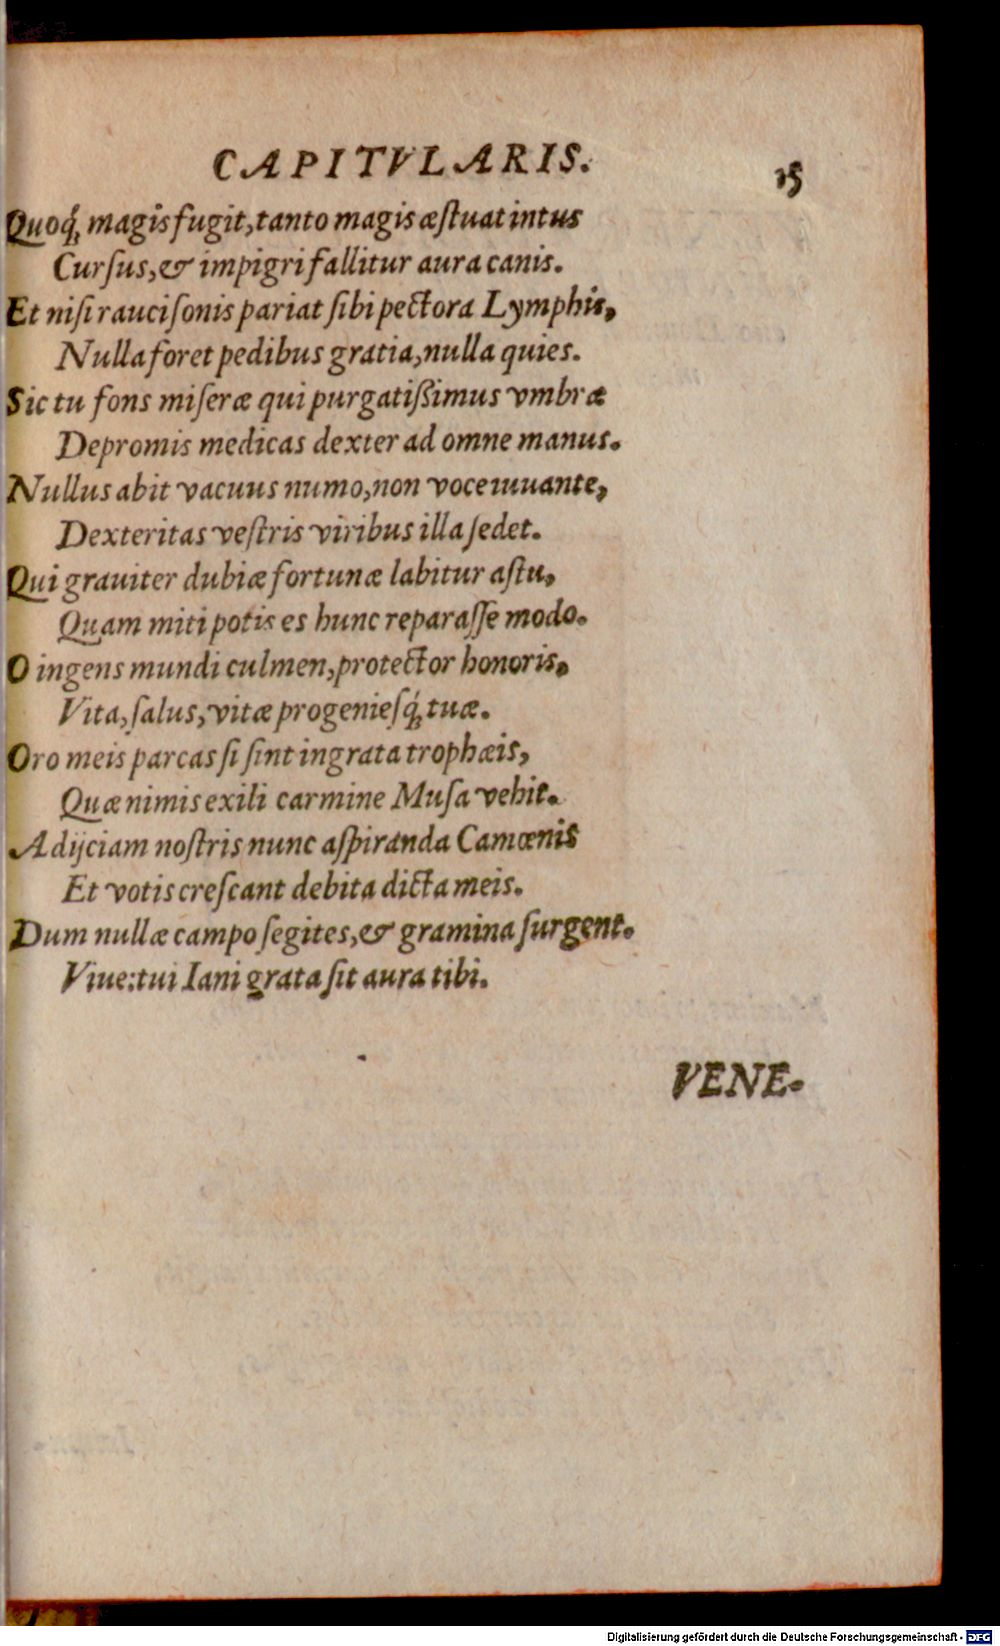 CAPITVLARIS. 15
Quoq́; magis fugit, tanto magis æſtuat intus
Curſus, & impigri fallitur aura canis.
Et niſi rauciſonis pariat ſibi pectora Lymphis,
Nulla foret pedibus gratia, nulla quies.
Sic tu fons miſeræ qui purgatißimus vmbræ
Depromis medicas dexter ad omne manus.
Nullus abit vacuus numo, non voce iuuante,
Dexteritas veſtris viribus illa ſedet.
Qui grauiter dubiæ fortunæ labitur aſtu,
Quam miti potis es hunc reparaſſe modo.
O ingens mundi culmen, protector honoris,
Vita, ſalus, vitæ progenieſq́; tuæ.
Oro meis parcas ſi ſint ingrata trophæis,
Quæ nimis exili carmine Muſa vehit.
Adijciam noſtris nunc aſpiranda Camœnis
Et votis creſcant debita dicta meis.
Dum nullæ campo ſegites, & gramina ſurgent.
Viue: tui Iani grata ſit aura tibi.
VENE-
Digitalisierung gefördert durch die Deutsche Forschungsgemeinschaft - DFG